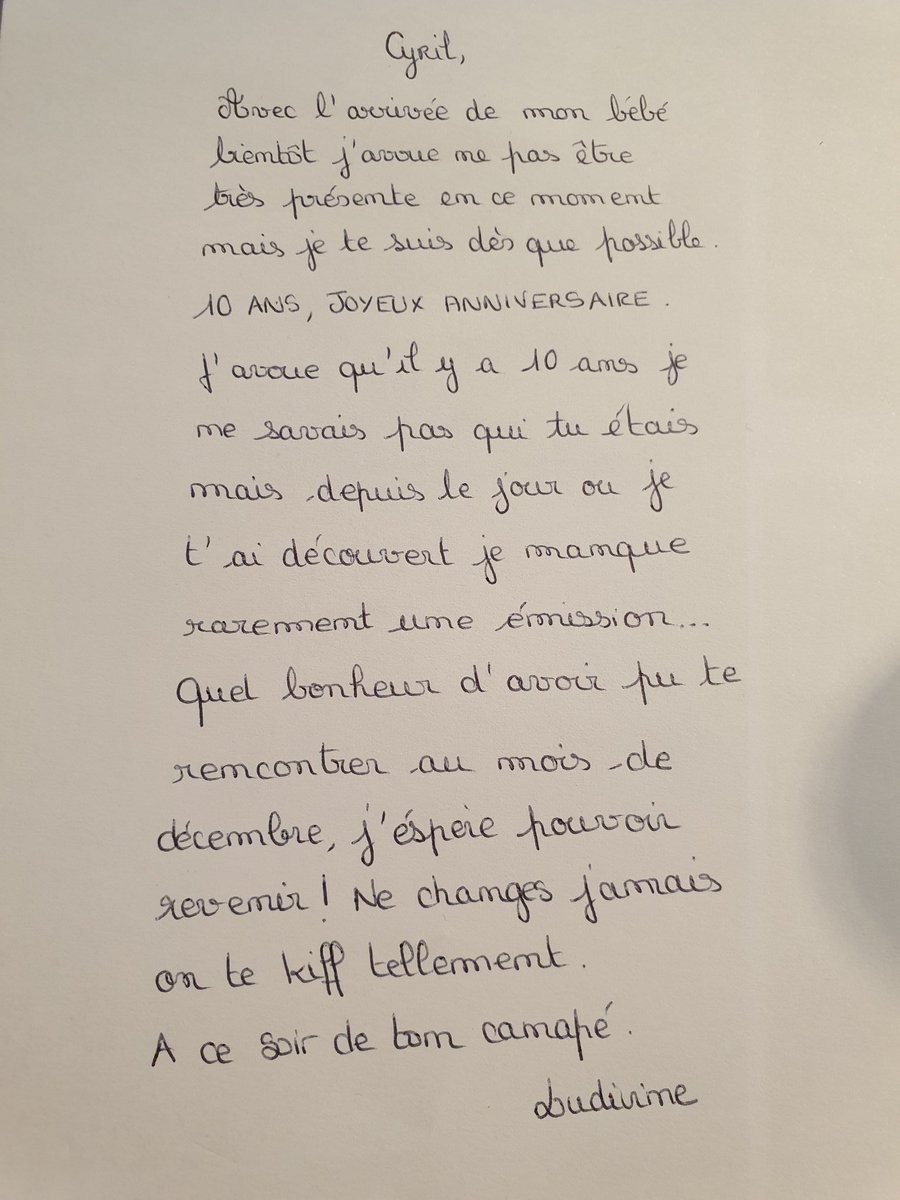 Cyril,
Avec l'arrivée de mon bébé
bientôt j'avoue ne pas être
très présente en ce moment
mais je te suis dès que possible.
10 ANS, JOYEUX ANNIVERSAIRE.
J'avoue qu'il y a 10 ans je
ne savais pas qui tu étais
mais depuis le jour ou je
t'ai découvert je manque
rarement une émission...
Quel bonheur d'avoir pu te
rencontrer au mois de
décembre, j'éspère pouvoir
revenir ! Ne changes jamais
on te kiff tellement.
A ce soir de ton canapé.
Ludivine